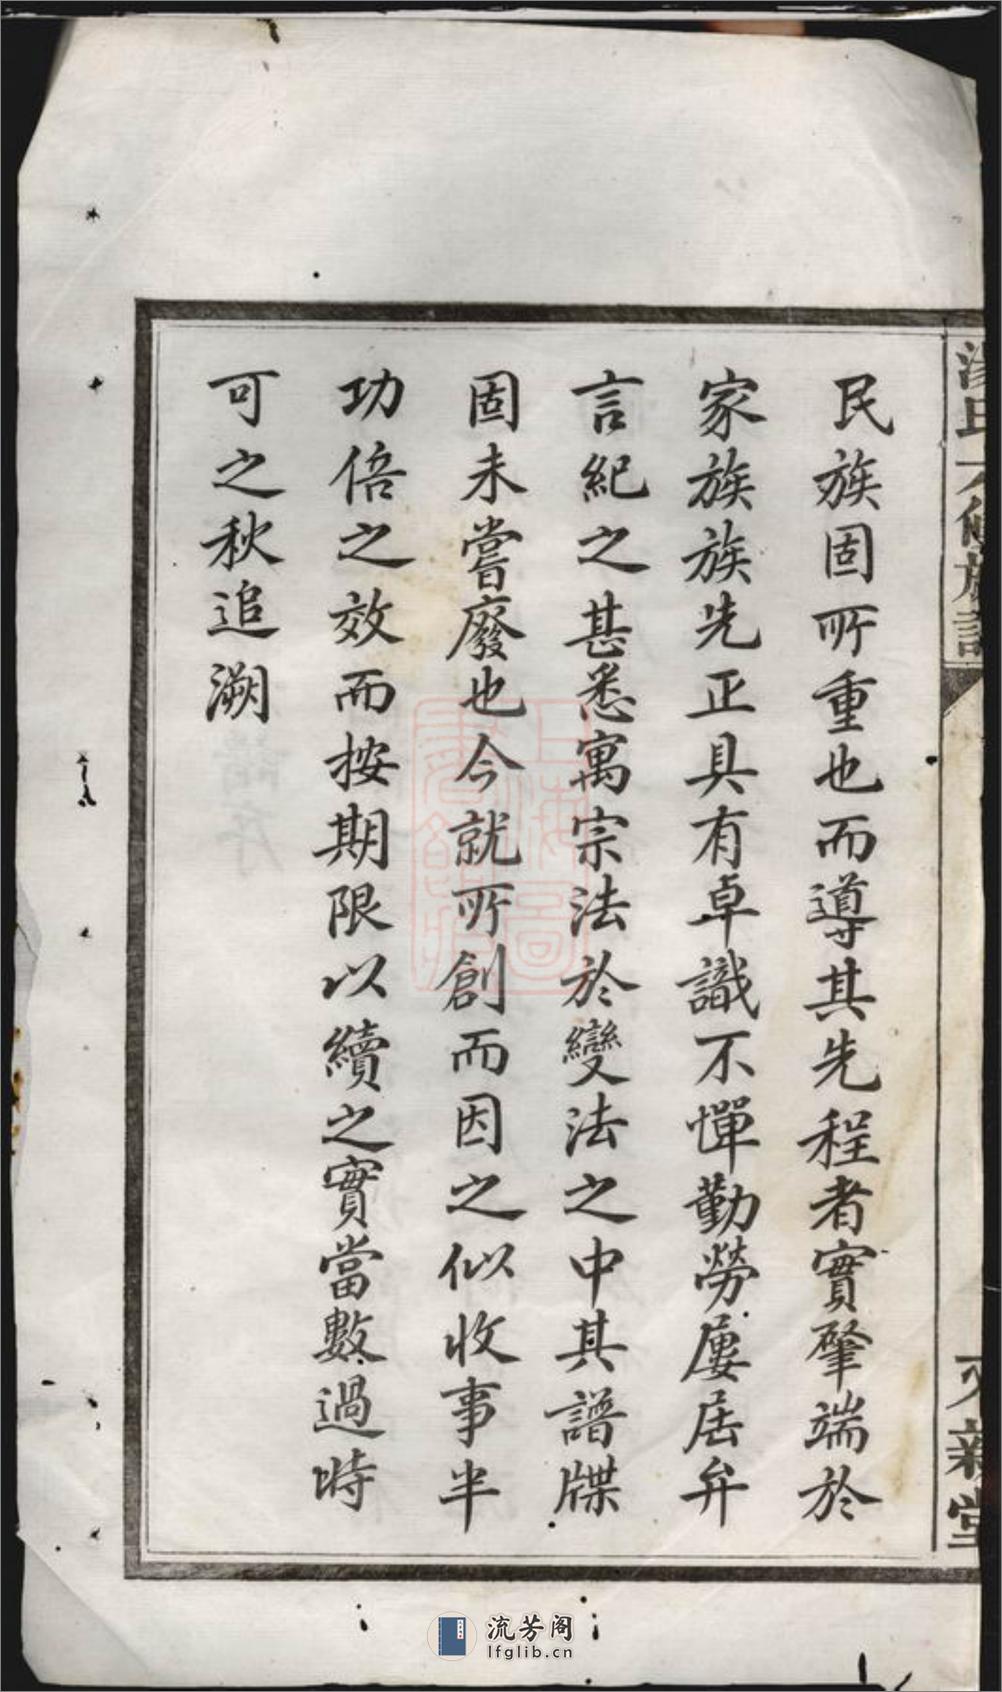 民族固所重也而導其先程者實肇端於
家族族先正具有卓識不憚勤勞屢屆弁
言紀之甚悉寓宗法於變法之中其譜牒
固未嘗廢也今就所創而因之似收事半
功倍之效而按期限以續之實當數過時
可之秋追溯
新堂
流芳阁
lfglib.cn